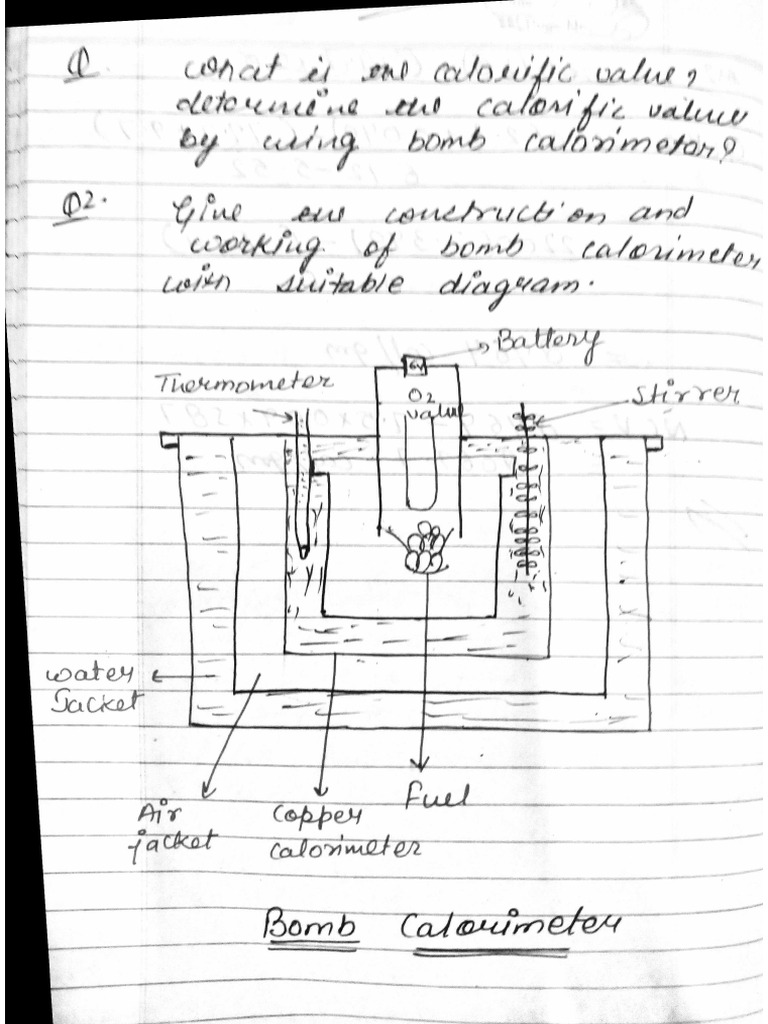 Q1 What is the calorific value?
determine the calorific value
by using bomb calorimeter?
Q2. Give the construction and
working of bomb calorimeter
with suitable diagram.
Battery
Thermometer
6V
O2
value
Stirrer
water
Jacket
Fuel
Air
jacket
Copper
calorimeter
Bomb Calorimeter